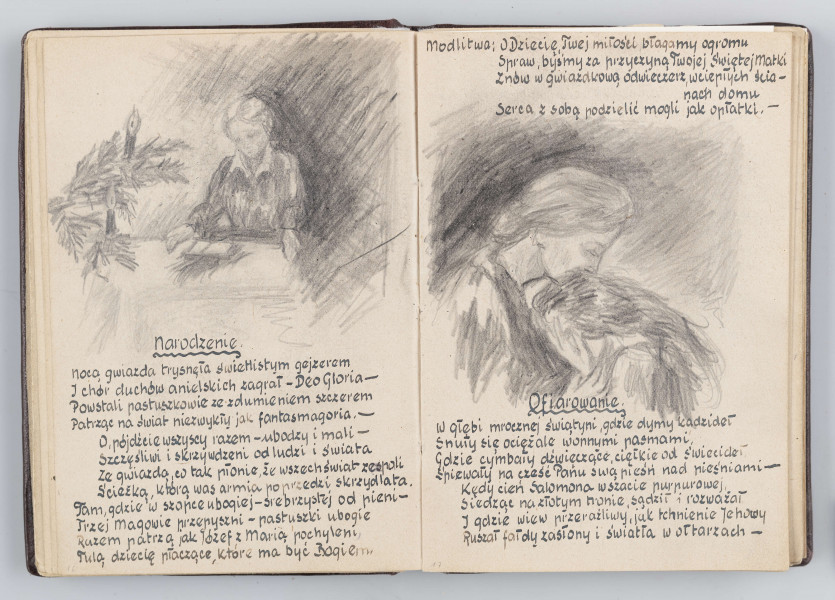 Narodzenie.
Nocą gwiazda trysnęła świetlistym gejzerem
I chór duchów anielskich zagrał – Deo Gloria –
Powstali pastuszkowie ze zdumieniem szczerem
Patrząc na świat niezwykły jak fantasmagoria. –
O, pójdźcie wszyscy razem – ubodzy i mali –
Szczęśliwi i skrzywdzeni od ludzi i świata
Ze gwiazdą, co tak płonie, że wszechświat zespoli
Ścieżką, którą was armia poprzedzi skrzydlata.
Tam, gdzie w szopce ubogiej – srebrzystej od pieni –
Trzej Magowie przepyszni – pastuszki ubogie
Razem patrzą jak Józef z Marią pochyleni,
Tulą dziecię płaczące, które ma być Bogiem.
Modlitwa; O Dziecię, Twej miłości błagamy ogromu
Spraw, byśmy za przyczyną Twojej Świętej Matki
Znów w gwiazdkową, odwieczerz, w ciepłych ścia–
nach domu
Serca z sobą podzielić mogli jak opłatki. –
Ofiarowanie.
W głębi mrocznej świątyni, gdzie dymy kadzideł
Snuły się ociężale wonnymi pasmami,
Gdzie cymbały dźwięczące, ciężkie od świecideł
Śpiewały na cześć Panu swą pieśń nad pieśniami –
Kędy cień Salomona w szacie purpurowej,
Siedząc na złotym tronie, sądził i rozważał
I gdzie wiew przeraźliwy, jak tchnienie Jehowy
Ruszał fałdy zasłony i światła w ołtarzach –